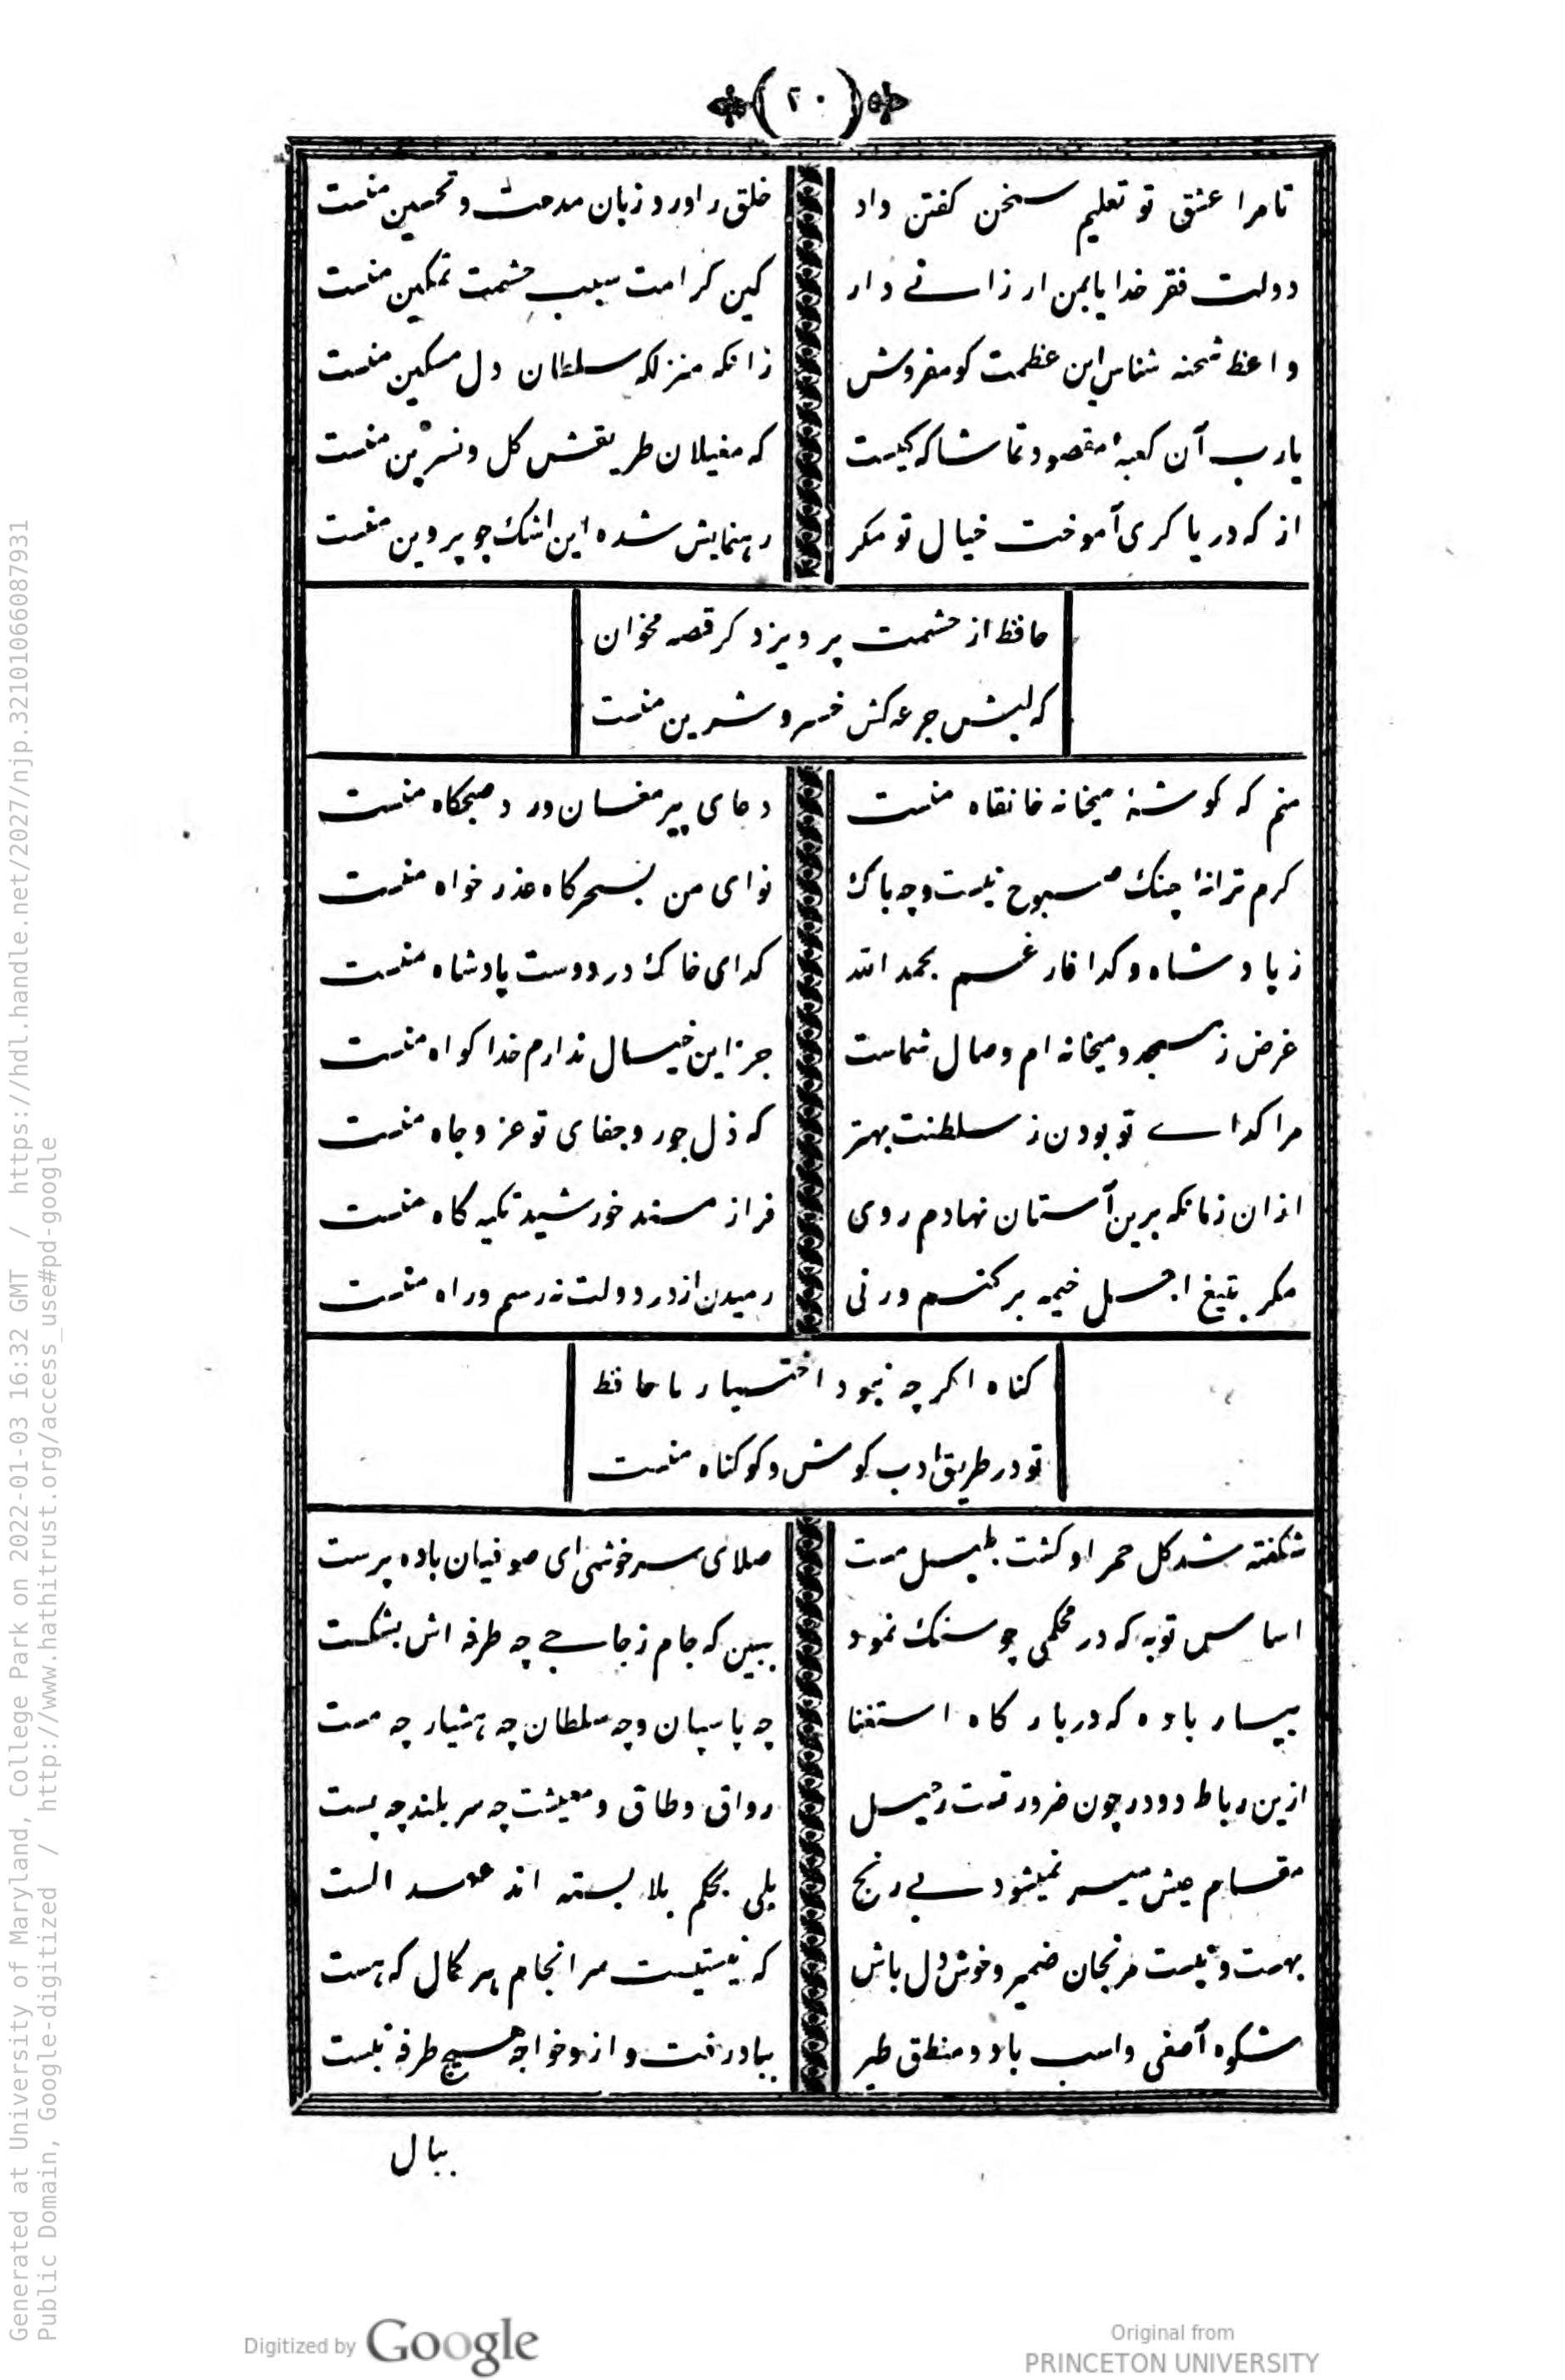 ( ۲۰ )
تا مرا عشق تو تعلیم سخن کفتن داد
خلق را ورد زبان مدحت و تحسین منست
دولت فقر خدایا بمن ارزانی دار
کین کرامت سبب حشمت تمکین منست
واعظ شحنه شناس این عظمت کو مفروش
زانکه منزلکه سلطان دل مسکین منست
یارب آن کعبهٔ مقصود تماشاکه کیست
که مغیلان طریقش کل و نسرین منست
از که دریا کری آموخت خیال تو مکر
رهنمایش شده این اشک چو پروین منست
حافظ از حشمت پرویز دکر قصه مخوان
که لبش جرعه کش خسرو شیرین منست
منم که کوشهٔ میخانه خانقاه منست
دعای پیر مغان ورد صبحکاه منست
کرم ترانهٔ چنک صبوح نیست و چه باک
نوای من بسحرکاه عذر خواه منست
ز پادشاه و کدا فارغم بحمد الله
کدای خاک در دوست پادشاه منست
غرض ز مسجد و میخانه ام وصال شماست
جز این خیال ندارم خدا کواه منست
مرا کدای تو بودن ز سلطنت بهتر
که ذل جور و جفای تو عز و جاه منست
ازان زمانکه برین آستان نهادم روی
فراز مسند خورشید تکیه کاه منست
مکر بتیغ اجل خیمه برکنم ورنی
رمیدن از در دولت نه رسم و راه منست
کناه اکرچه نبود اختیار ما حافظ
تو در طریق ادب کوش و کو کناه منست
شکفته شد کل حمرا و کشت بلبل مست
صلای سرخوشی ای صوفیان باده پرست
اساس توبه که در محکمی چو سنک نمود
ببین که جام زجاجی چه طرفه اش بشکست
بیار باده که در بارکاه استغنا
چه پاسبان و چه سلطان چه هشیار چه مست
ازین رباط دودر چون ضرورتست رحیل
رواق و طاق و معیشت چه سر بلند چه پست
مقام عیش میسر نمیشود بی رنج
بلی بحکم بلا بسته اند عهد الست
بهست و نیست مرنجان ضمیر و خوش دل باش
که نیستیست سر انجام هر کمال که هست
شکوه آصفی و اسب باد و منطق طیر
بباد رفت و ازو خواجه هیچ طرفه نبست
ببال
Generated at University of Maryland, College Park on 2022-01-03 16:32 GMT / https://hdl.handle.net/2027/njp.32101066087931
Public Domain, Google-digitized / http://www.hathitrust.org/access_use#pd-google
Digitized by Google
Original from
PRINCETON UNIVERSITY